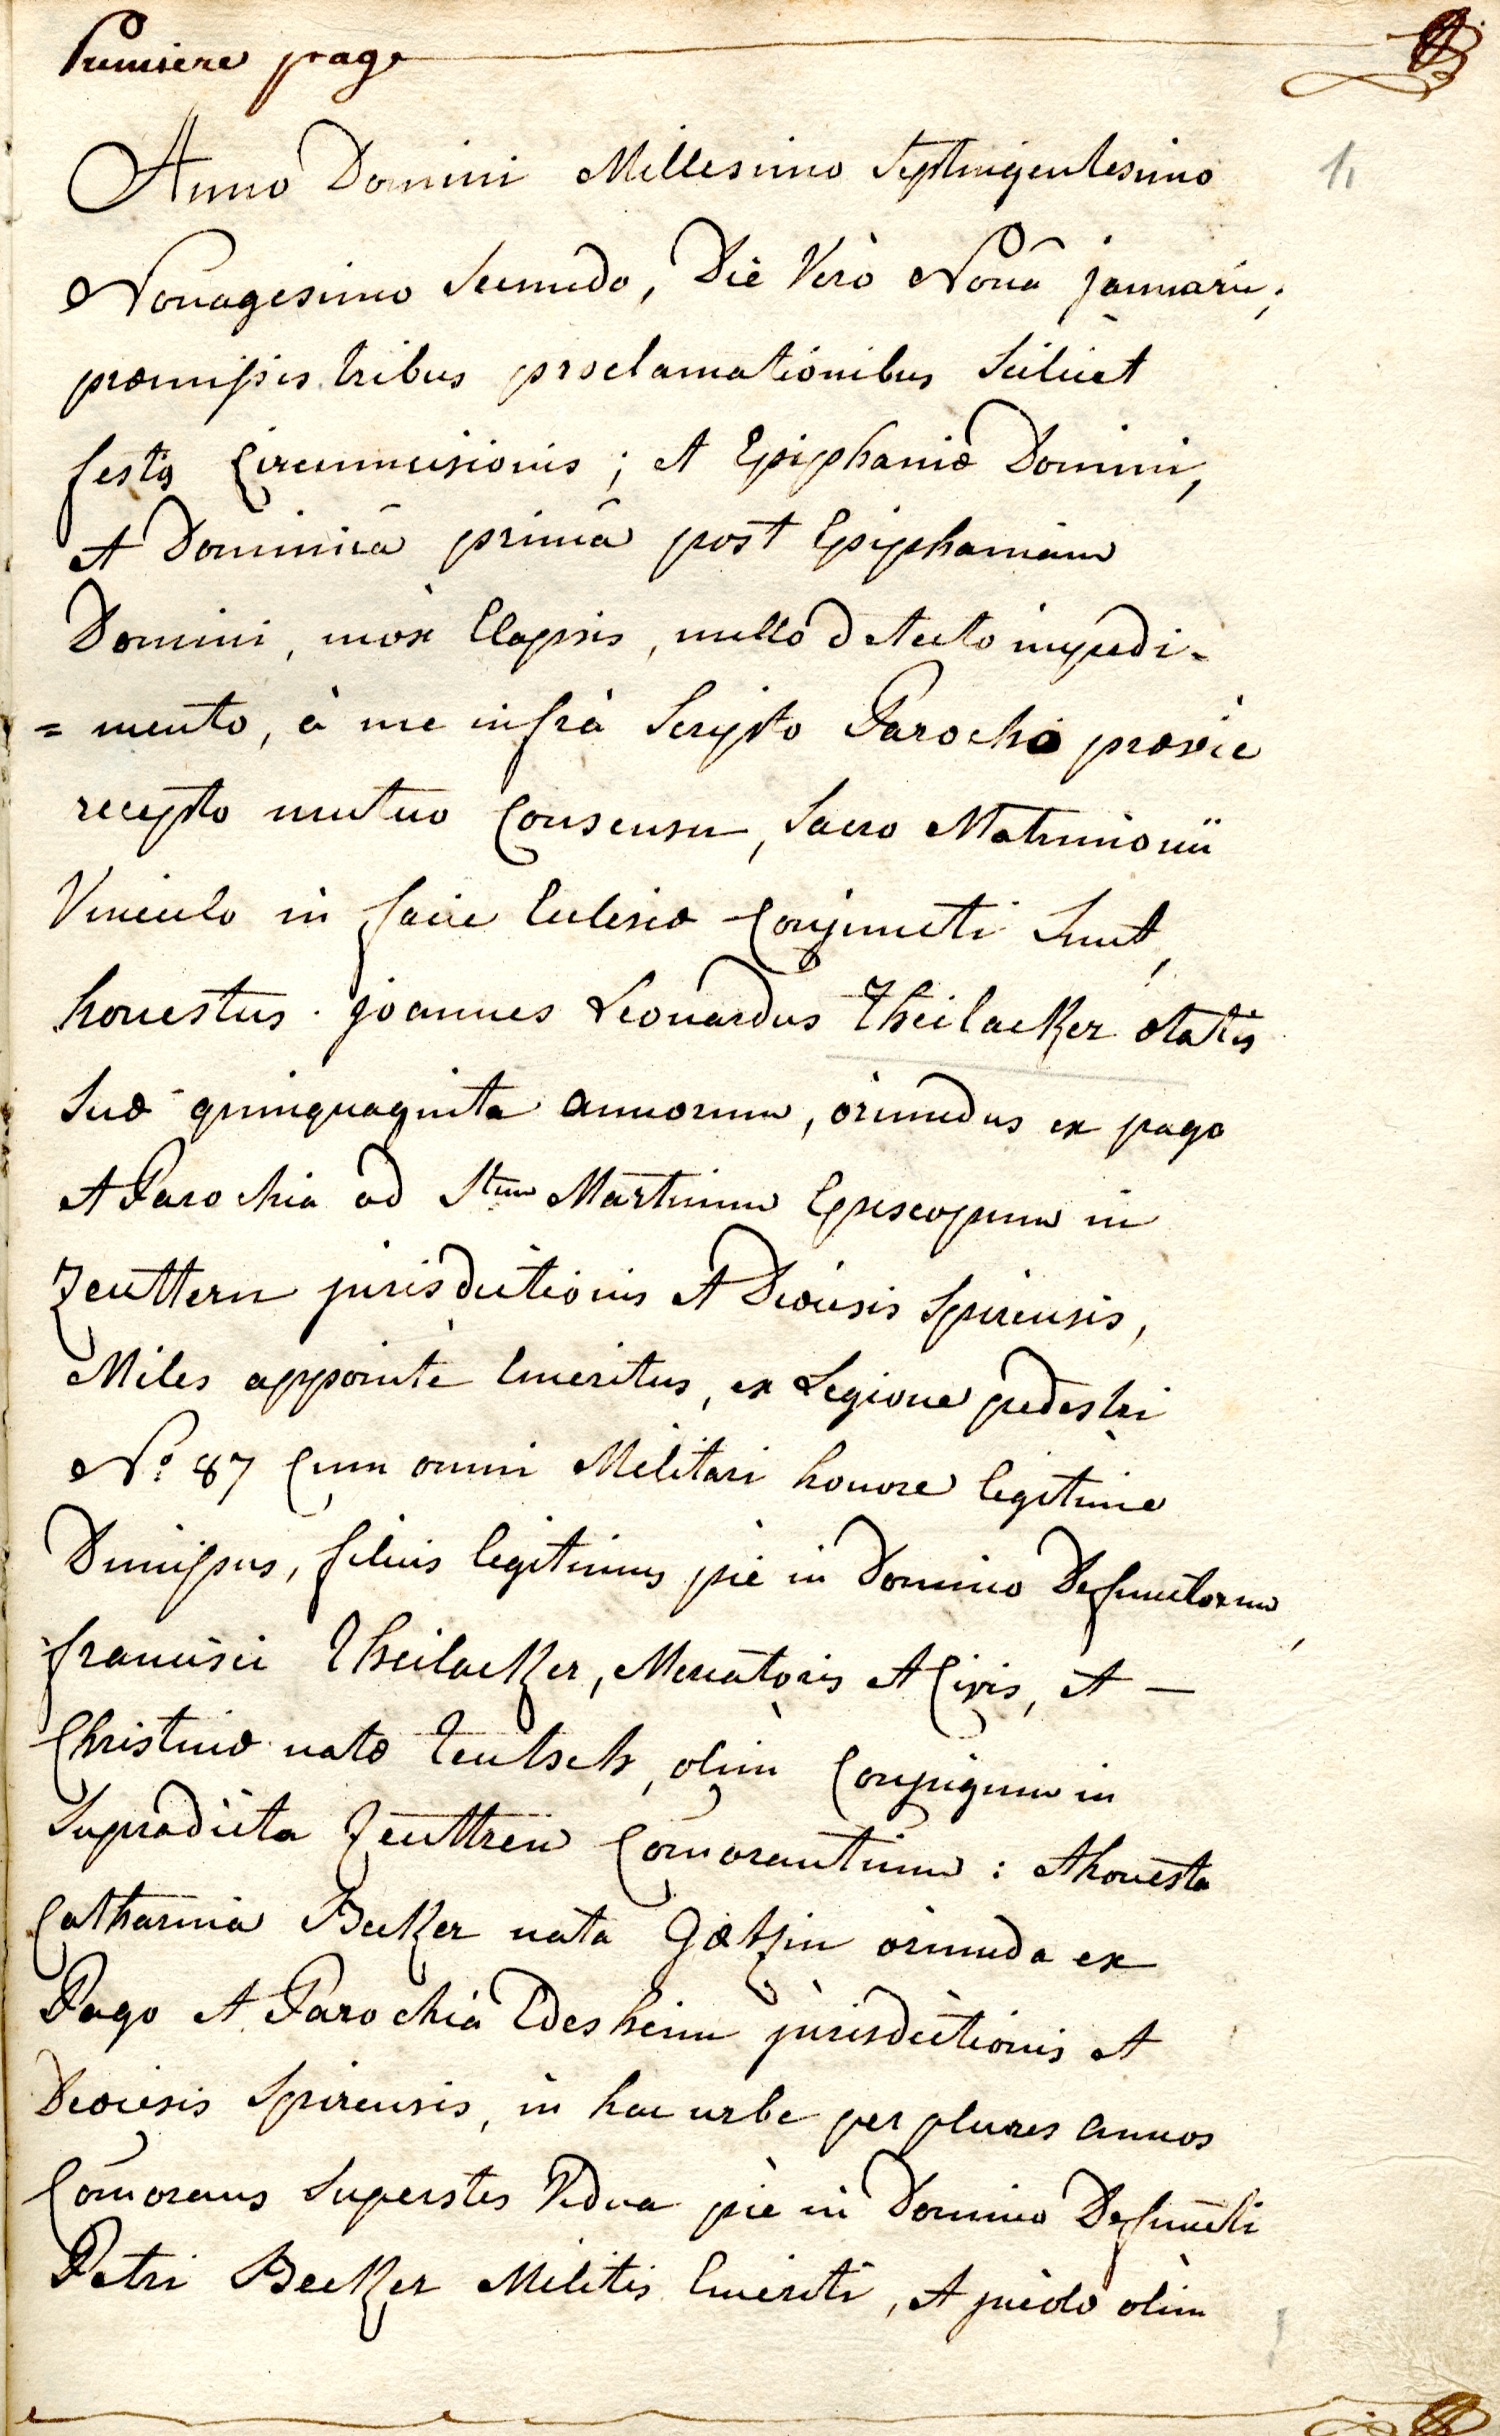 Premiere page
1
Anno Domini Millesimo Septingentesimo
Nonagesimo Secundo, Die Verò Nonâ januarii;
præmissis tribus proclamationibus Scilicet
festis Circumcisionis; et Epiphaniæ Domini,
et Dominicâ primâ post Epiphaniam
Domini, mox Elapsis, nullo detecto impedi-
= mento, à me infrà Scripto Parocho prævie
recepto mutuo Consensu, Sacro Matrimonii
Vinculo in facie Eclesiæ Conjuncti Sunt,
honestus joannes Leonardus Theilacker ætatis
Suæ quinquaginta annorum, oriundus ex pago
et Parochia ad Stum Martinum Episcopum in
Zeuttern jurisdictionis et Diœcesis Spirensis,
Miles appointé Emeritus, ex Legione pedestri
N.º 87 Cum omni Militari honore legitime
Dimissus, filius legitimus piè in Domino Defunctorum,
francisci Theilacker, Mercatoris et Civis, et —
Christinæ natæ Teutsch, olim Conjugum in
Supradicta Zeuttren Comorantium: et honesta
Catharina Becker nata Gætzin oriunda ex
Pago et Parochiâ Edesheim jurisdictionis et
Diœcesis Spirensis, in hac urbe per plures annos
Comorans Superstes Vidua piè in Domino Defuncti
Petri Becker Militis Emeriti, et olim